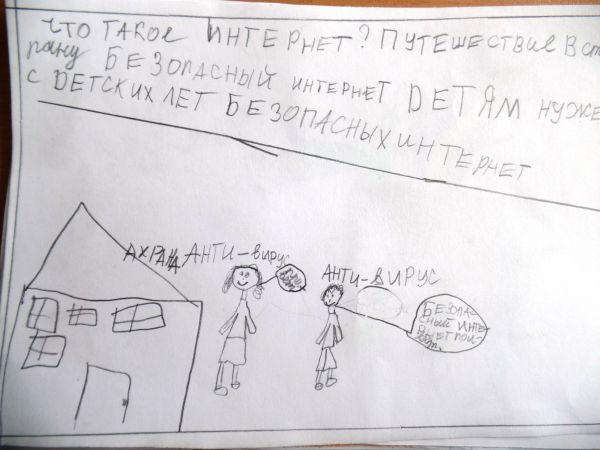 ЧТО ТАКОЕ ИНТЕРНЕТ? ПУТЕШЕСТВИЕ В ст
рану БЕЗОПАСНЫЙ ИНТЕРНЕТ ДЕТЯМ НУЖЕ
С ДЕТСКИХ ЛЕТ БЕЗОПАСНЫХ ИНТЕРНЕТ
АХРАНА АНТИ-вирус
АНТИ-ВИРУС
БЕЗОПА-
СНЫЙ ИНТЕ-